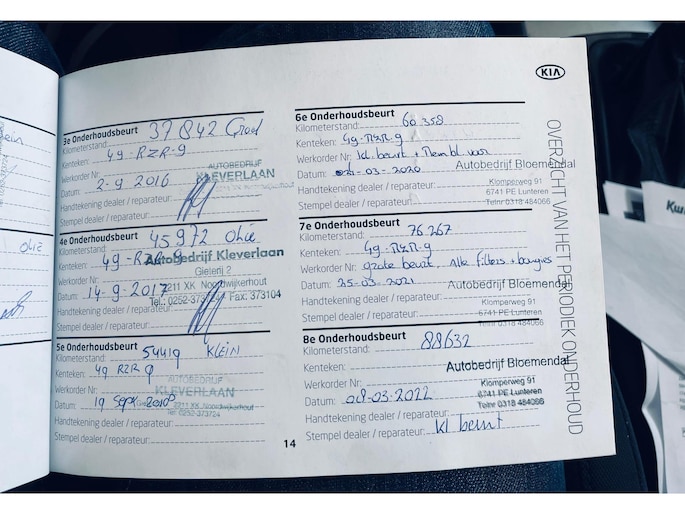 KIA
OVERZICHT VAN HET PERIODIEK ONDERHOUD
3e Onderhoudsbeurt 37 842 Groot
Kilometerstand:
Kenteken: 49-RZR-9
Werkorder Nr:
Datum: 2-9 2016
Handtekening dealer / reparateur:
Stempel dealer / reparateur:
AUTOBEDRIJF
KLEVERLAAN
4e Onderhoudsbeurt 45972 Olie
Kilometerstand:
Kenteken: 49-RZR-9
Werkorder Nr:
Datum: 14-9-2017
Handtekening dealer / reparateur:
Stempel dealer / reparateur:
Autobedrijf Kleverlaan
Gieterij 2
2211 XK Noordwijkerhout
Tel.: 0252-373724 Fax: 373104
5e Onderhoudsbeurt
Kilometerstand: 54419 KLEIN
Kenteken: 49 RZR 9
Werkorder Nr:
Datum: 19 Sept 2018
Handtekening dealer / reparateur:
Stempel dealer / reparateur:
AUTOBEDRIJF
KLEVERLAAN
2211 XK Noordwijkerhout
Tel: 0252-373724
6e Onderhoudsbeurt
Kilometerstand: 60 358
Kenteken: 49-RZR-9
Werkorder Nr: kl. beurt + Rem bl. voor
Datum: 021-03-2020
Handtekening dealer / reparateur:
Stempel dealer / reparateur:
Autobedrijf Bloemendal
Klomperweg 91
6741 PE Lunteren
Telnr 0318 484066
7e Onderhoudsbeurt
Kilometerstand: 76 267
Kenteken: 49-RZR-9
Werkorder Nr: grote beurt, Alle filters + bougies
Datum: 25-03-2021
Handtekening dealer / reparateur:
Stempel dealer / reparateur:
Autobedrijf Bloemendal
Klomperweg 91
6741 PE Lunteren
Telnr 0318 484066
8e Onderhoudsbeurt
Kilometerstand: 88632
Kenteken:
Werkorder Nr:
Datum: 08-03-2022
Handtekening dealer / reparateur:
Stempel dealer / reparateur: kl beurt
Autobedrijf Bloemendal
Klomperweg 91
6741 PE Lunteren
Telnr 0318 484066
14
olie